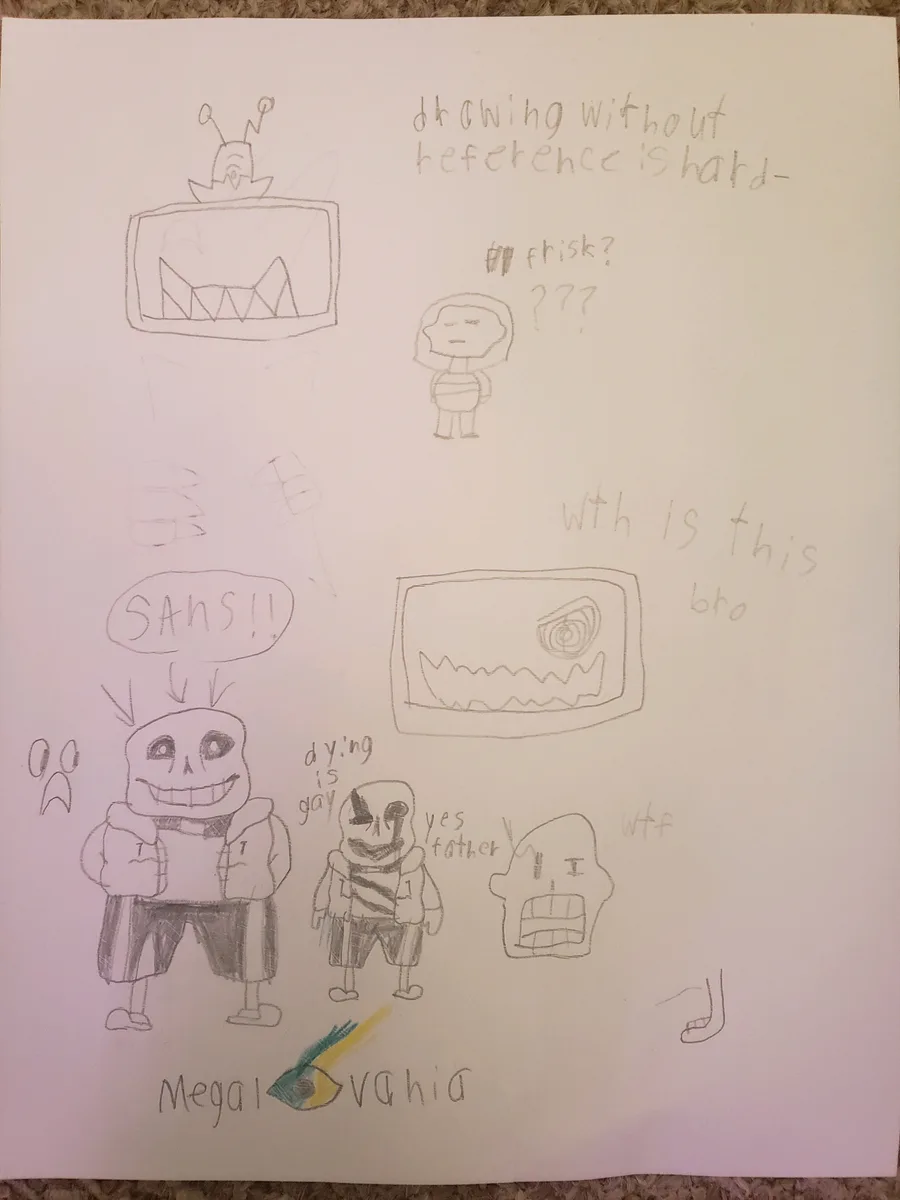 drawing without
reference is hard-
frisk?
???
wth is this
bro
SAnS!!
dying
is
gay
yes
father
wtf
Megal vania